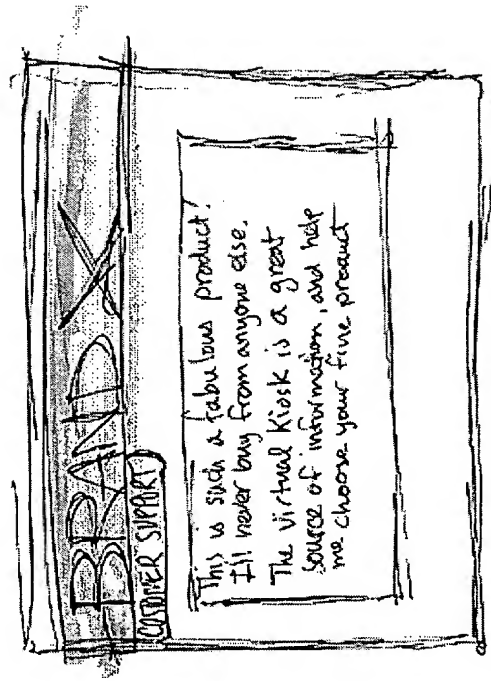 BRAND X
CUSTOMER SUPPORT
This is such a fabulous product!
I'll never buy from anyone else.
The virtual Kiosk is a great
source of information, and help
me choose your fine product